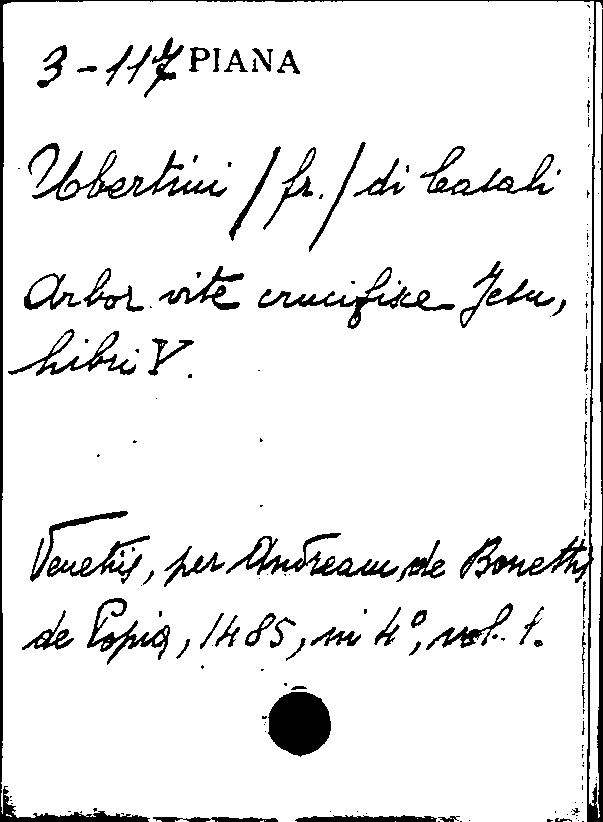 3-117 PIANA
Ubertini / fr. / di Casali
Arbor vite crucifixe Jesu,
libri V.
Venetiis, per Andream de Bonettis
de Papia, 1485, in 4º, vol. 1.